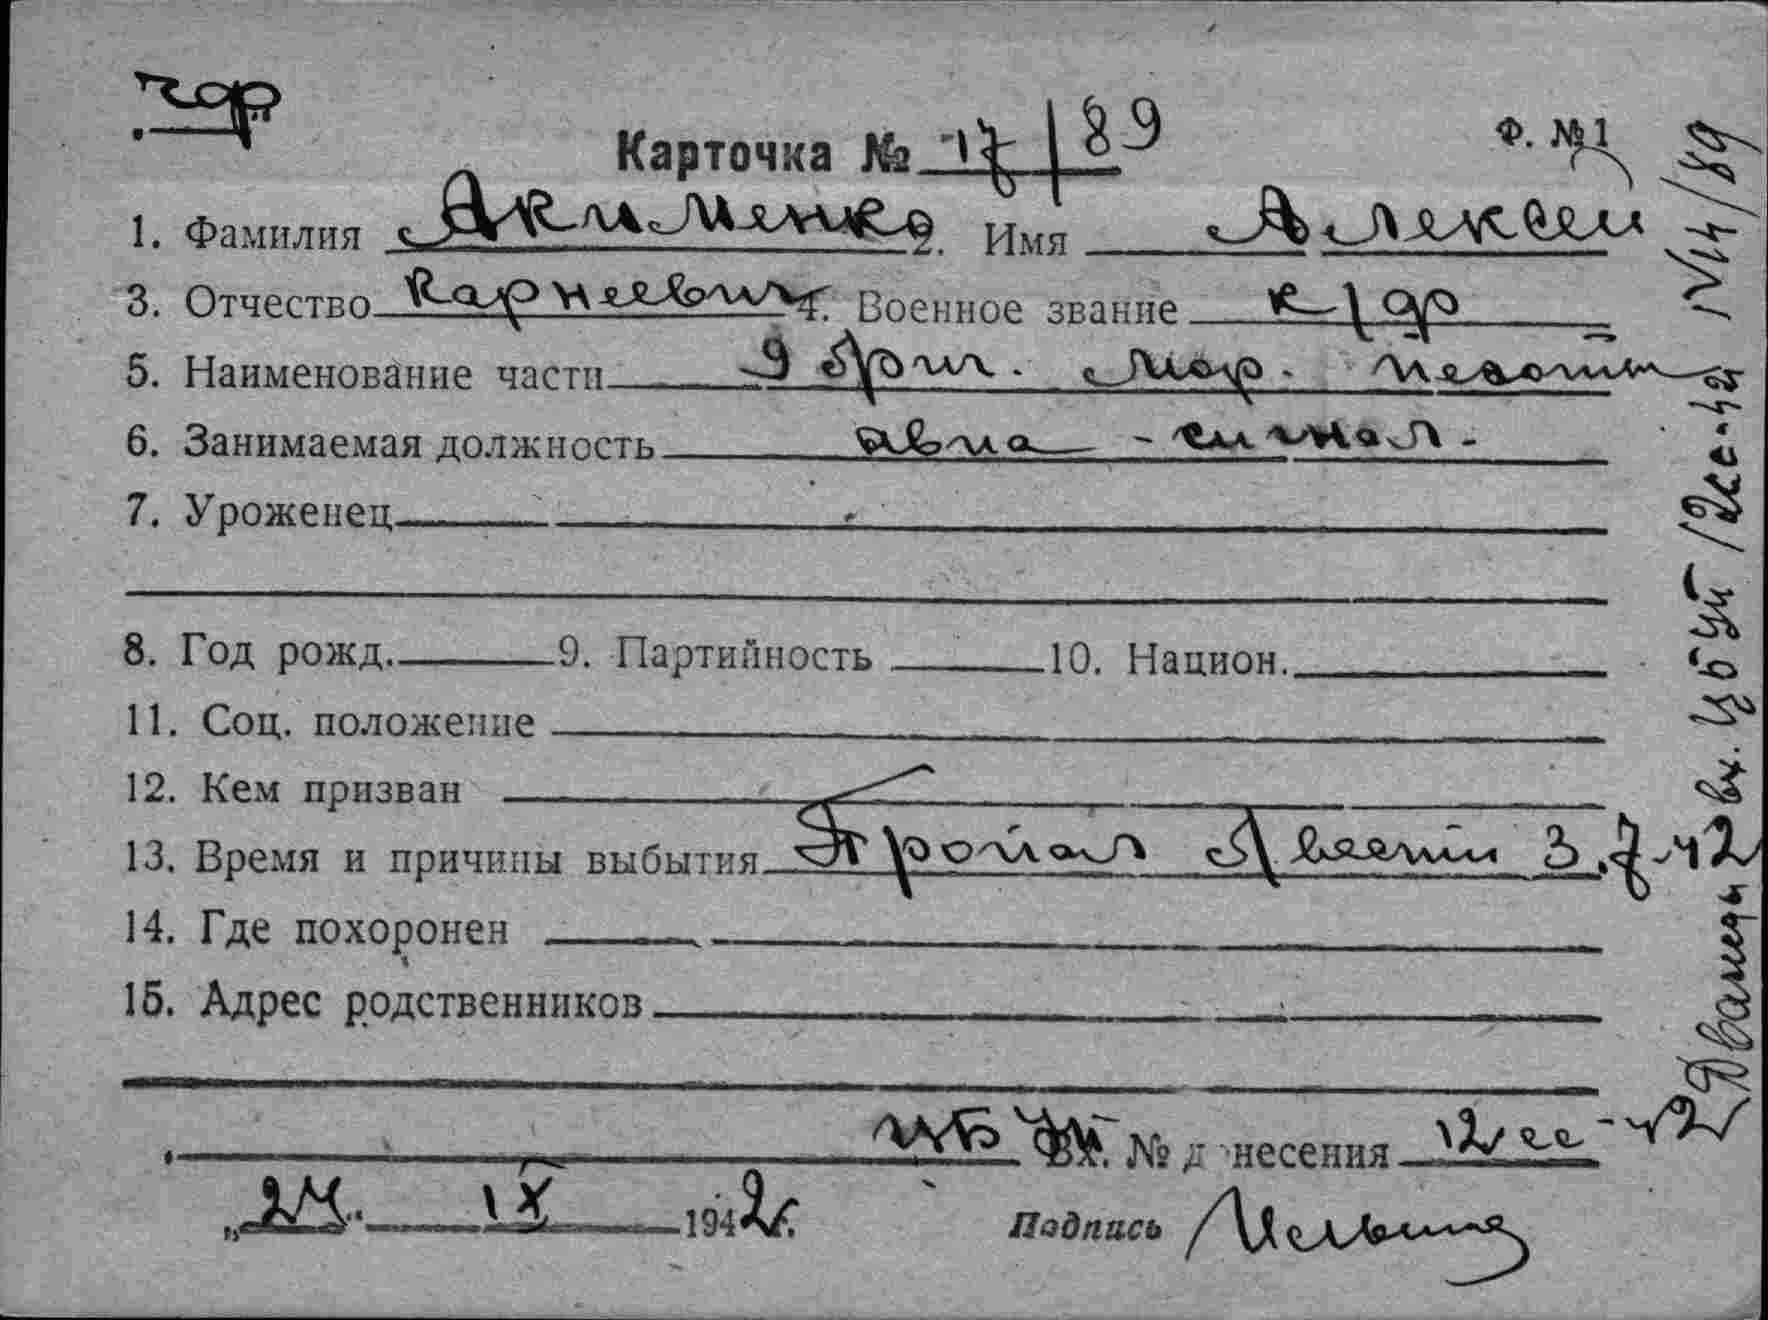 Карточка № 17/89
Ф. № 1
1. Фамилия Акименко 2. Имя Алексей
3. Отчество Карнеевич 4. Военное звание к/ф
5. Наименование части 9 бриг. мор. пехоты
6. Занимаемая должность авиа-сигнал.
7. Уроженец
8. Год рожд. 9. Партийность 10. Национ.
11. Соц. положение
12. Кем призван
13. Время и причины выбытия Пропал без вести 3.7-42
14. Где похоронен
15. Адрес родственников
Вх. № донесения 12сс-42
„24“ IX 1942г.
Подпись